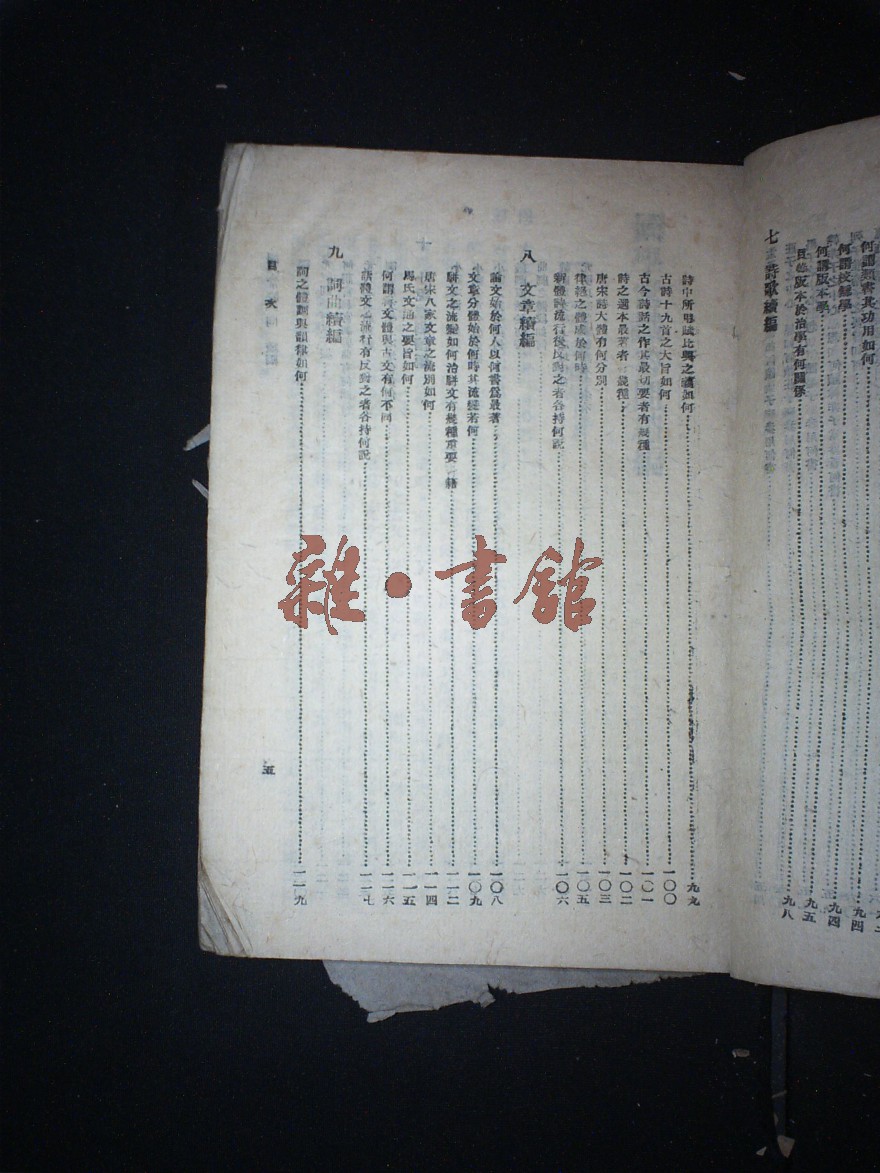 何謂類書其功用如何
何謂校讎學 九四
何謂版本學 九四
目錄版本於治學有何關係 九五
九八
七 詩歌續編
詩中所用賦比興之義如何 九九
古詩十九首之大旨如何 一〇〇
古今詩話之作其最切要者有幾種 一〇一
詩之選本最著者 幾種 一〇二
唐宋詩大體有何分別 一〇三
律絕之體成於何時 一〇五
新體詩流行後反對之者各持何說 一〇六
八 文章續編
論文始於何人以何書爲最著 一〇八
文章分體始於何時其流變若何 一〇九
駢文之流變如何治駢文有幾種重要 籍 一一二
唐宋八家文章之流別如何 一一四
馬氏文通之要旨如何 一一五
何謂時文體與古文有何不同 一一六
語體文之流行有反對之者各持何說 一一七
九 詞曲續編
詞之體製與韻律如何 一一九
目次
五
雜·書館